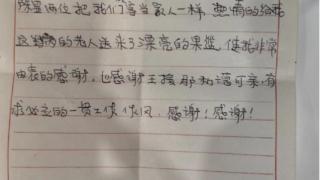 两位把我们都当家人一样,热情的给我
的老人送来了漂亮的果篮,使我非常
由衷的感谢,也感谢王接那和蔼可亲,有
求必应的一贯工作作风,感谢!感谢!